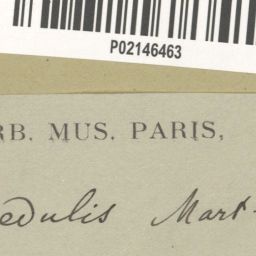 P02146463
RB. MUS. PARIS,
edulis Mart-